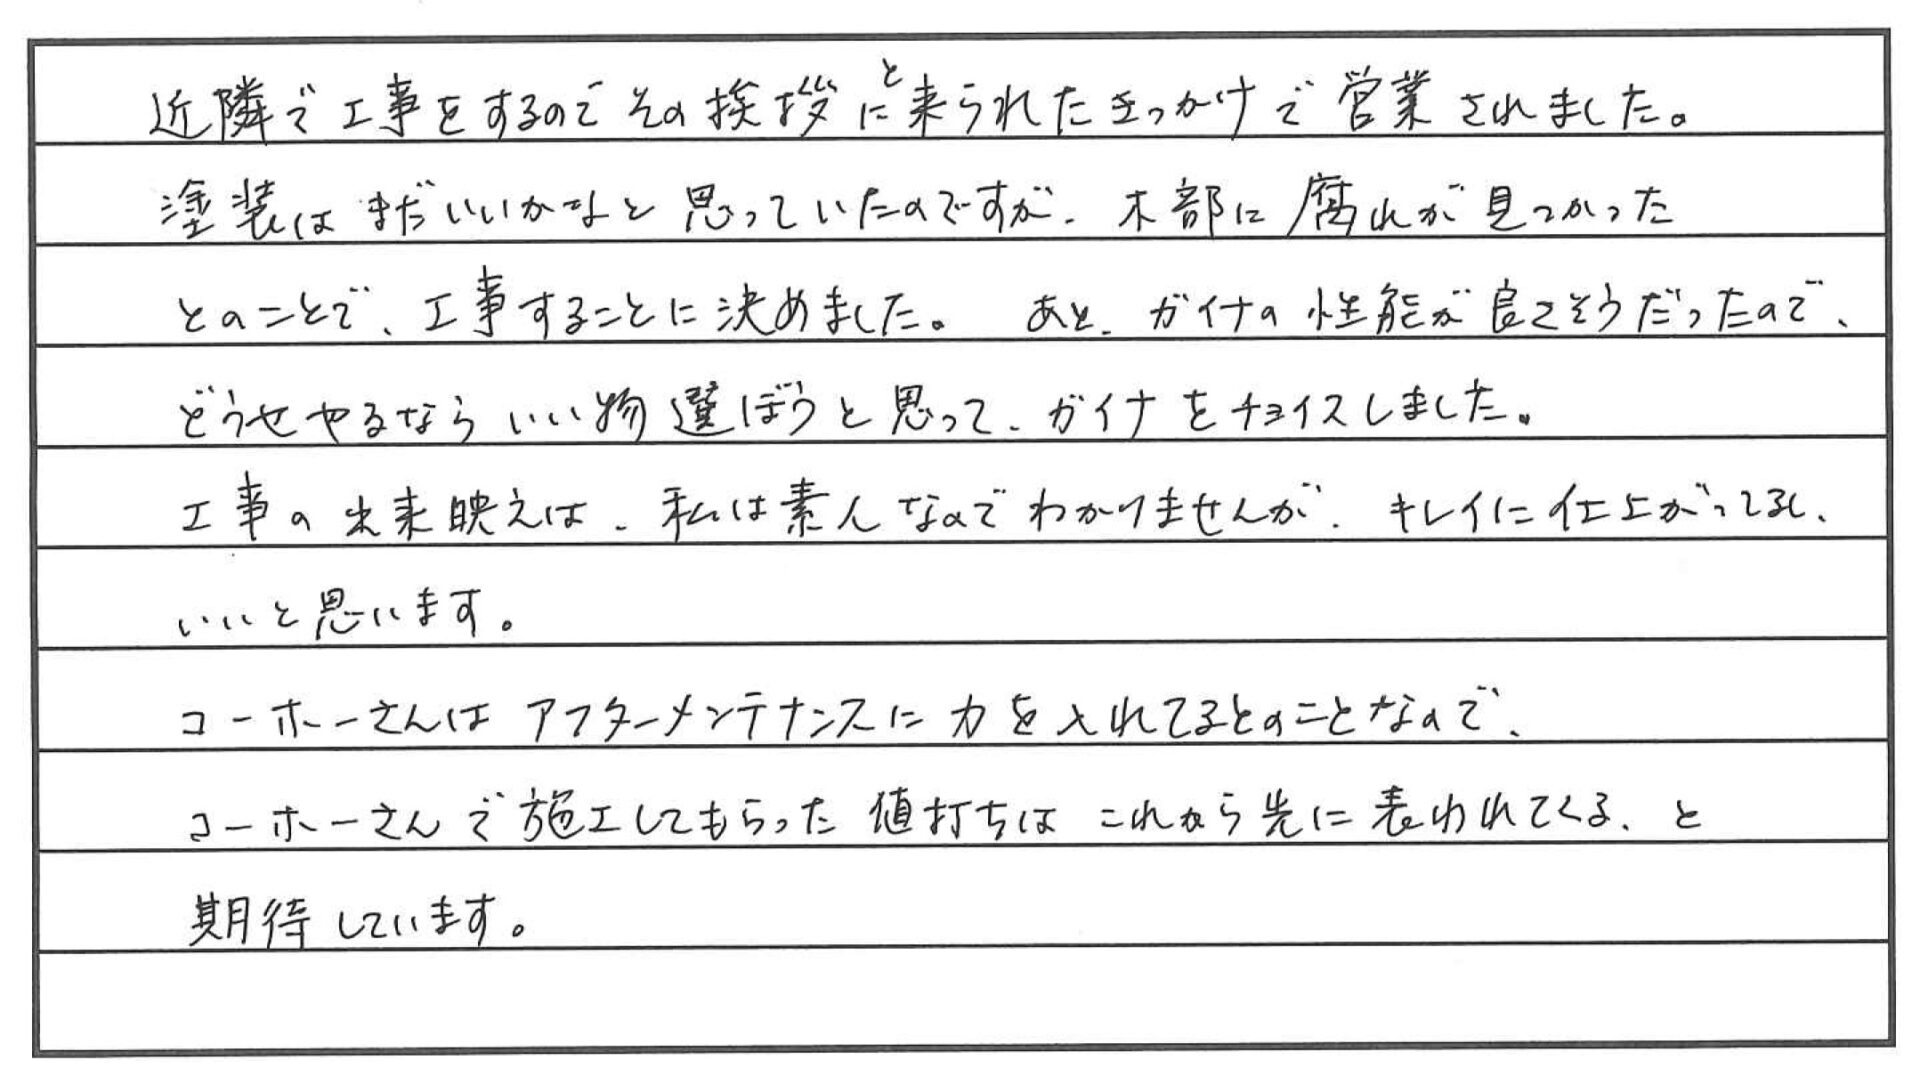 近隣で工事をするのでその挨拶にと来られたきっかけで営業されました。
塗装はまだいいかなと思っていたのですが、木部に腐れが見つかった
とのことで、工事することに決めました。 あと、ガイナの性能が良さそうだったので、
どうせやるならいい物選ぼうと思って、ガイナをチョイスしました。
工事の出来映えは、私は素人なのでわかりませんが、キレイに仕上がってるし、
いいと思います。
コーホーさんはアフターメンテナンスに力を入れてるとのことなので、
コーホーさんで施工してもらった値打ちはこれから先に表われてくる、と
期待しています。